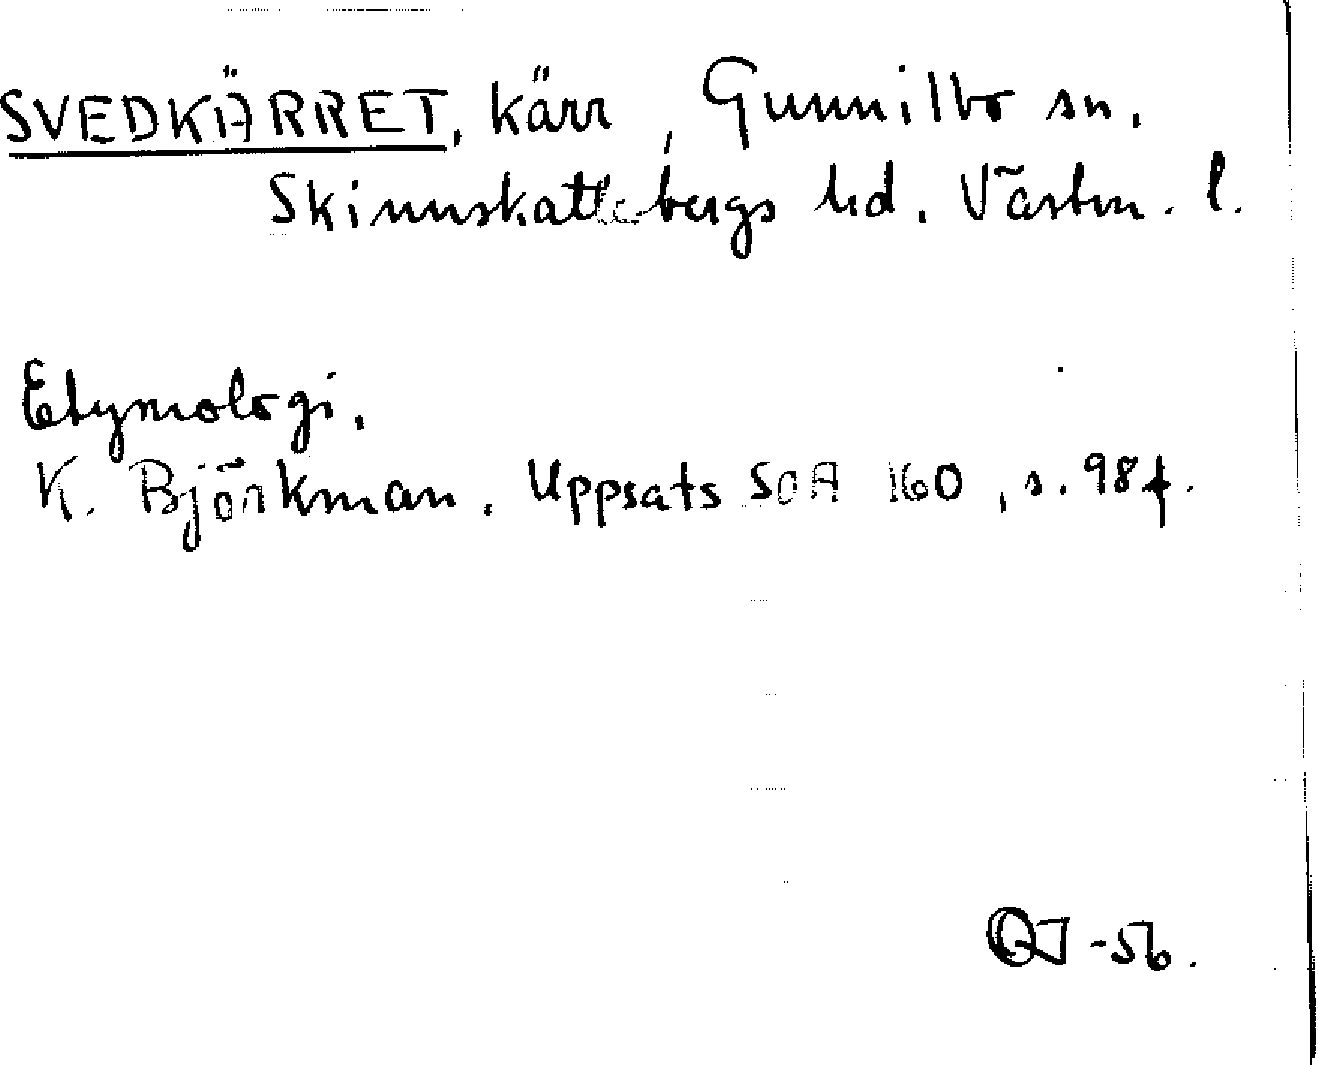 SVEDKÄRRET, kärr, Gunnilbo sn.
Skinnskattebergs hd. Västm. l.
Etymologi.
K. Björkman. Uppsats SOA 160, s. 98 f.
-56.